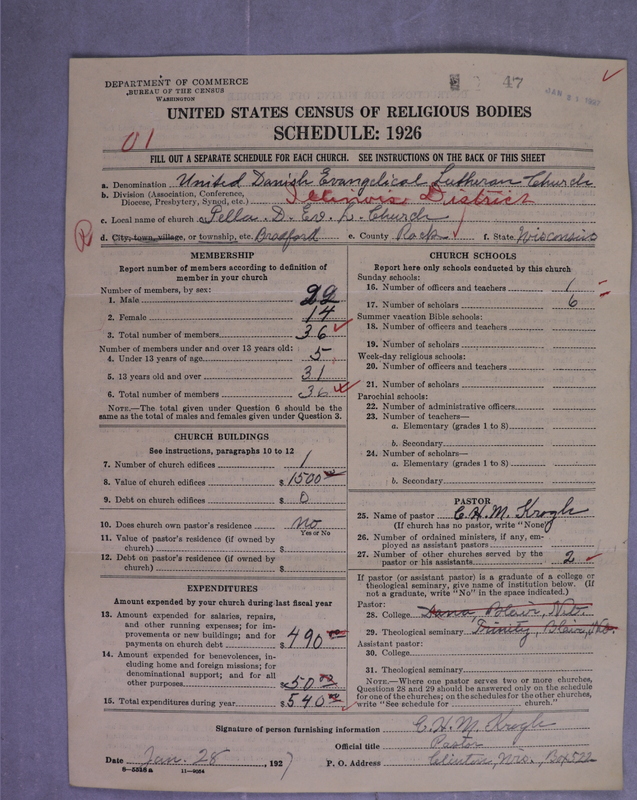 DEPARTMENT OF COMMERCE
BUREAU OF THE CENSUS
WASHINGTON
47
UNITED STATES CENSUS OF RELIGIOUS BODIES
SCHEDULE: 1926
01
FILL OUT A SEPARATE SCHEDULE FOR EACH CHURCH. SEE INSTRUCTIONS ON THE BACK OF THIS SHEET
a. Denomination United Danish Evangelical Lutheran Church
b. Division (Association, Conference, Diocese, Presbytery, Synod, etc.) Illinois District
c. Local name of church Pella D. Ev. L. Church
R
d. City, town, village, or township, etc. Bradford e. County Rock f. State Wisconsin
MEMBERSHIP
Report number of members according to definition of
member in your church
Number of members, by sex:
1. Male 22
2. Female 14
3. Total number of members 36
Number of members under and over 13 years old:
4. Under 13 years of age 5
5. 13 years old and over 31
6. Total number of members 36
NOTE.—The total given under Question 6 should be
same as the total of males and females given under Question 3.
CHURCH BUILDINGS
See instructions, paragraphs 10 to 12
7. Number of church edifices 1
8. Value of church edifices $ 1500
9. Debt on church edifices $ 0
10. Does church own pastor's residence no
Yes or No
11. Value of pastor's residence (if owned by
church) $
12. Debt on pastor's residence (if owned by
church) $
EXPENDITURES
Amount expended by your church during last fiscal year
13. Amount expended for salaries, repairs,
and other running expenses; for im-
provements or new buildings; and for
payments on church debt $ 490
14. Amount expended for benevolences, in-
cluding home and foreign missions; for
denominational support; and for all
other purposes 50
15. Total expenditures during year $ 540
CHURCH SCHOOLS
Report here only schools conducted by this church
Sunday schools:
16. Number of officers and teachers 1
17. Number of scholars 6
Summer vacation Bible schools:
18. Number of officers and teachers
19. Number of scholars
Week-day religious schools:
20. Number of officers and teachers
21. Number of scholars
Parochial schools:
22. Number of administrative officers
23. Number of teachers—
a. Elementary (grades 1 to 8)
b. Secondary
24. Number of scholars—
a. Elementary (grades 1 to 8)
b. Secondary
PASTOR
25. Name of pastor C. H. M. Krogh
(If church has no pastor, write "None")
26. Number of ordained ministers, if any, em-
ployed as assistant pastors
27. Number of other churches served by the
pastor or his assistants 2
If pastor (or assistant pastor) is a graduate of a college or
theological seminary, give name of institution below. (If
not a graduate, write "No" in the space indicated.)
Pastor:
28. College Dana, Blair, Neb.
29. Theological seminary Trinity, Blair, Neb.
Assistant pastor:
30. College
31. Theological seminary
NOTE.—Where one pastor serves two or more churches,
Questions 28 and 29 should be answered only on the schedule
for one of the churches; on the schedules for the other churches,
write "See schedule for church."
Signature of person furnishing information C. H. M. Krogh
Official title Pastor
Date Jan. 28, 1927 P. O. Address Clinton, Wis., Box 522
8—5516a 11—9054